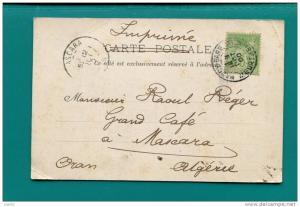 Imprimé
CARTE POSTALE
Ce côté est exclusivement réservé à l'adresse
MASCARA
Monsieur Raoul Réger
Grand Café
à Mascara
Oran Algérie